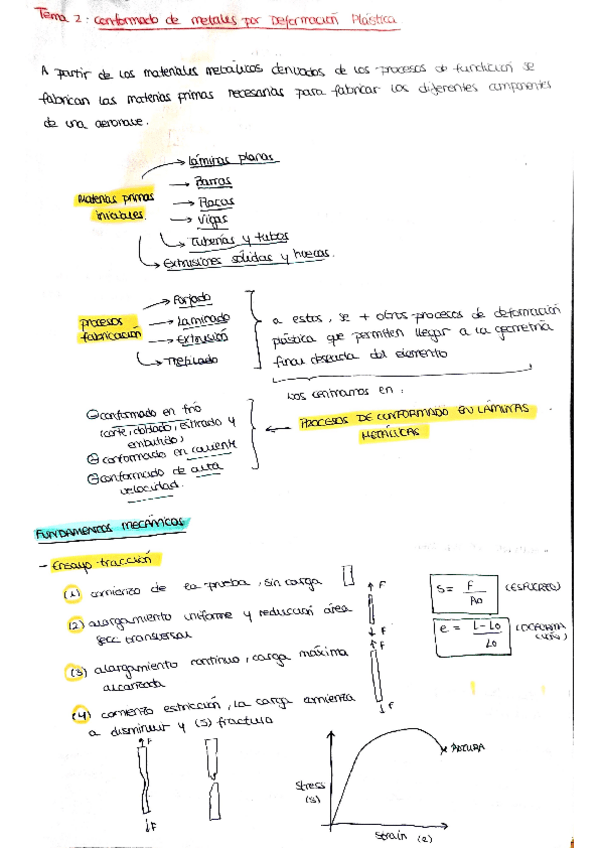 Tema 2: Conformado de metales por Deformación Plástica
A partir de los materiales metálicos derivados de los procesos de fundición se
fabrican las materias primas necesarias para fabricar los diferentes componentes
de una aeronave.
Materias primas
iniciales.
láminas planas
Barras
Placas
Vigas
Tuberías y tubos
Extrusiones sólidas y huecas.
procesos
fabricación
Forjado
Laminado
Extrusión
Trefilado
a estos, se + otros procesos de deformación
plástica que permiten llegar a la geometría
final deseada del elemento
Nos centramos en :
PROCESOS DE CONFORMADO EN LÁMINAS
METÁLICAS
conformado en frío
(corte, doblado, estirado y
embutido)
conformado en caliente
conformado de alta
velocidad.
FUNDAMENTOS MECÁNICOS
- Ensayo tracción
(1) comienzo de la prueba, sin carga
(2) alargamiento uniforme y reducción área
secc transversal
(3) alargamiento continuo, carga máxima
alcanzada
(4) comienzo estricción, la carga comienza
a disminuir y (5) fractura
F
F
F
F
S = F / Ao (ESFUERZO)
e = L - Lo / Lo
F
F
Stress
(s)
ROTURA
Strain (e)